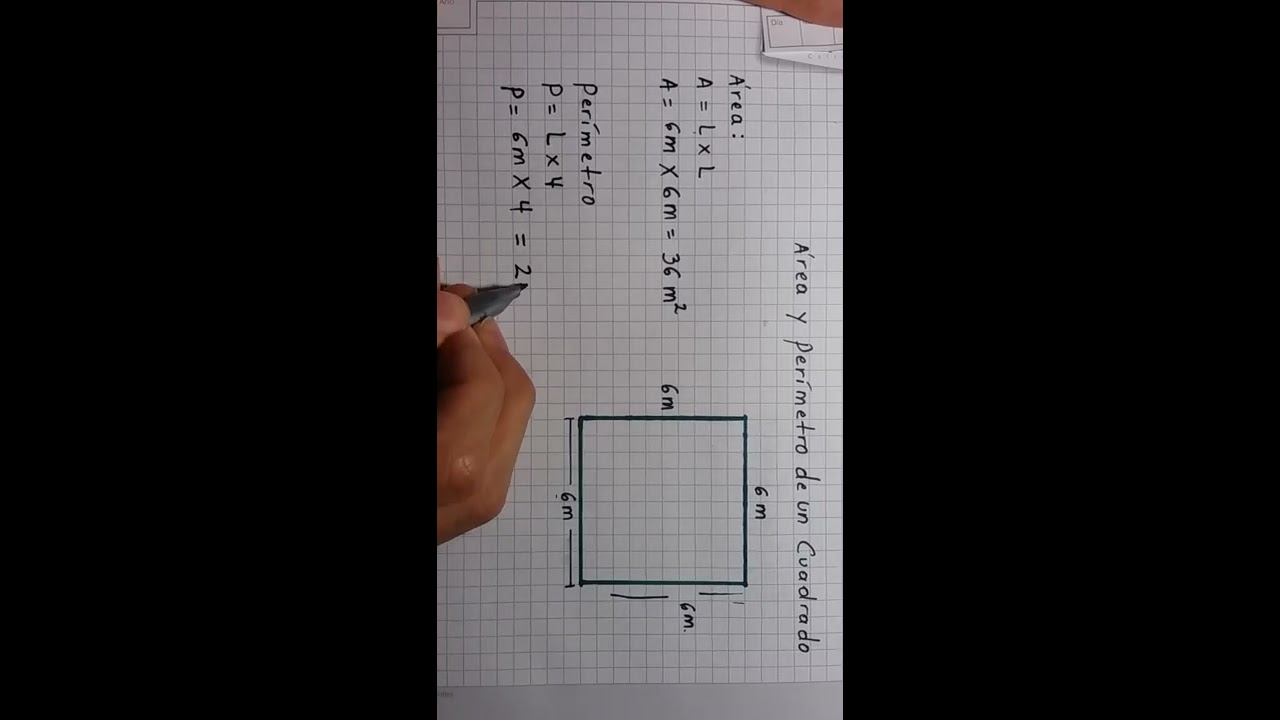 Día
Área y Perímetro de un Cuadrado
Área:
A = L x L
A = 6m X 6m = 36 m²
6m
6m
6m
6m.
Perímetro
P = L x 4
P = 6m X 4 = 2